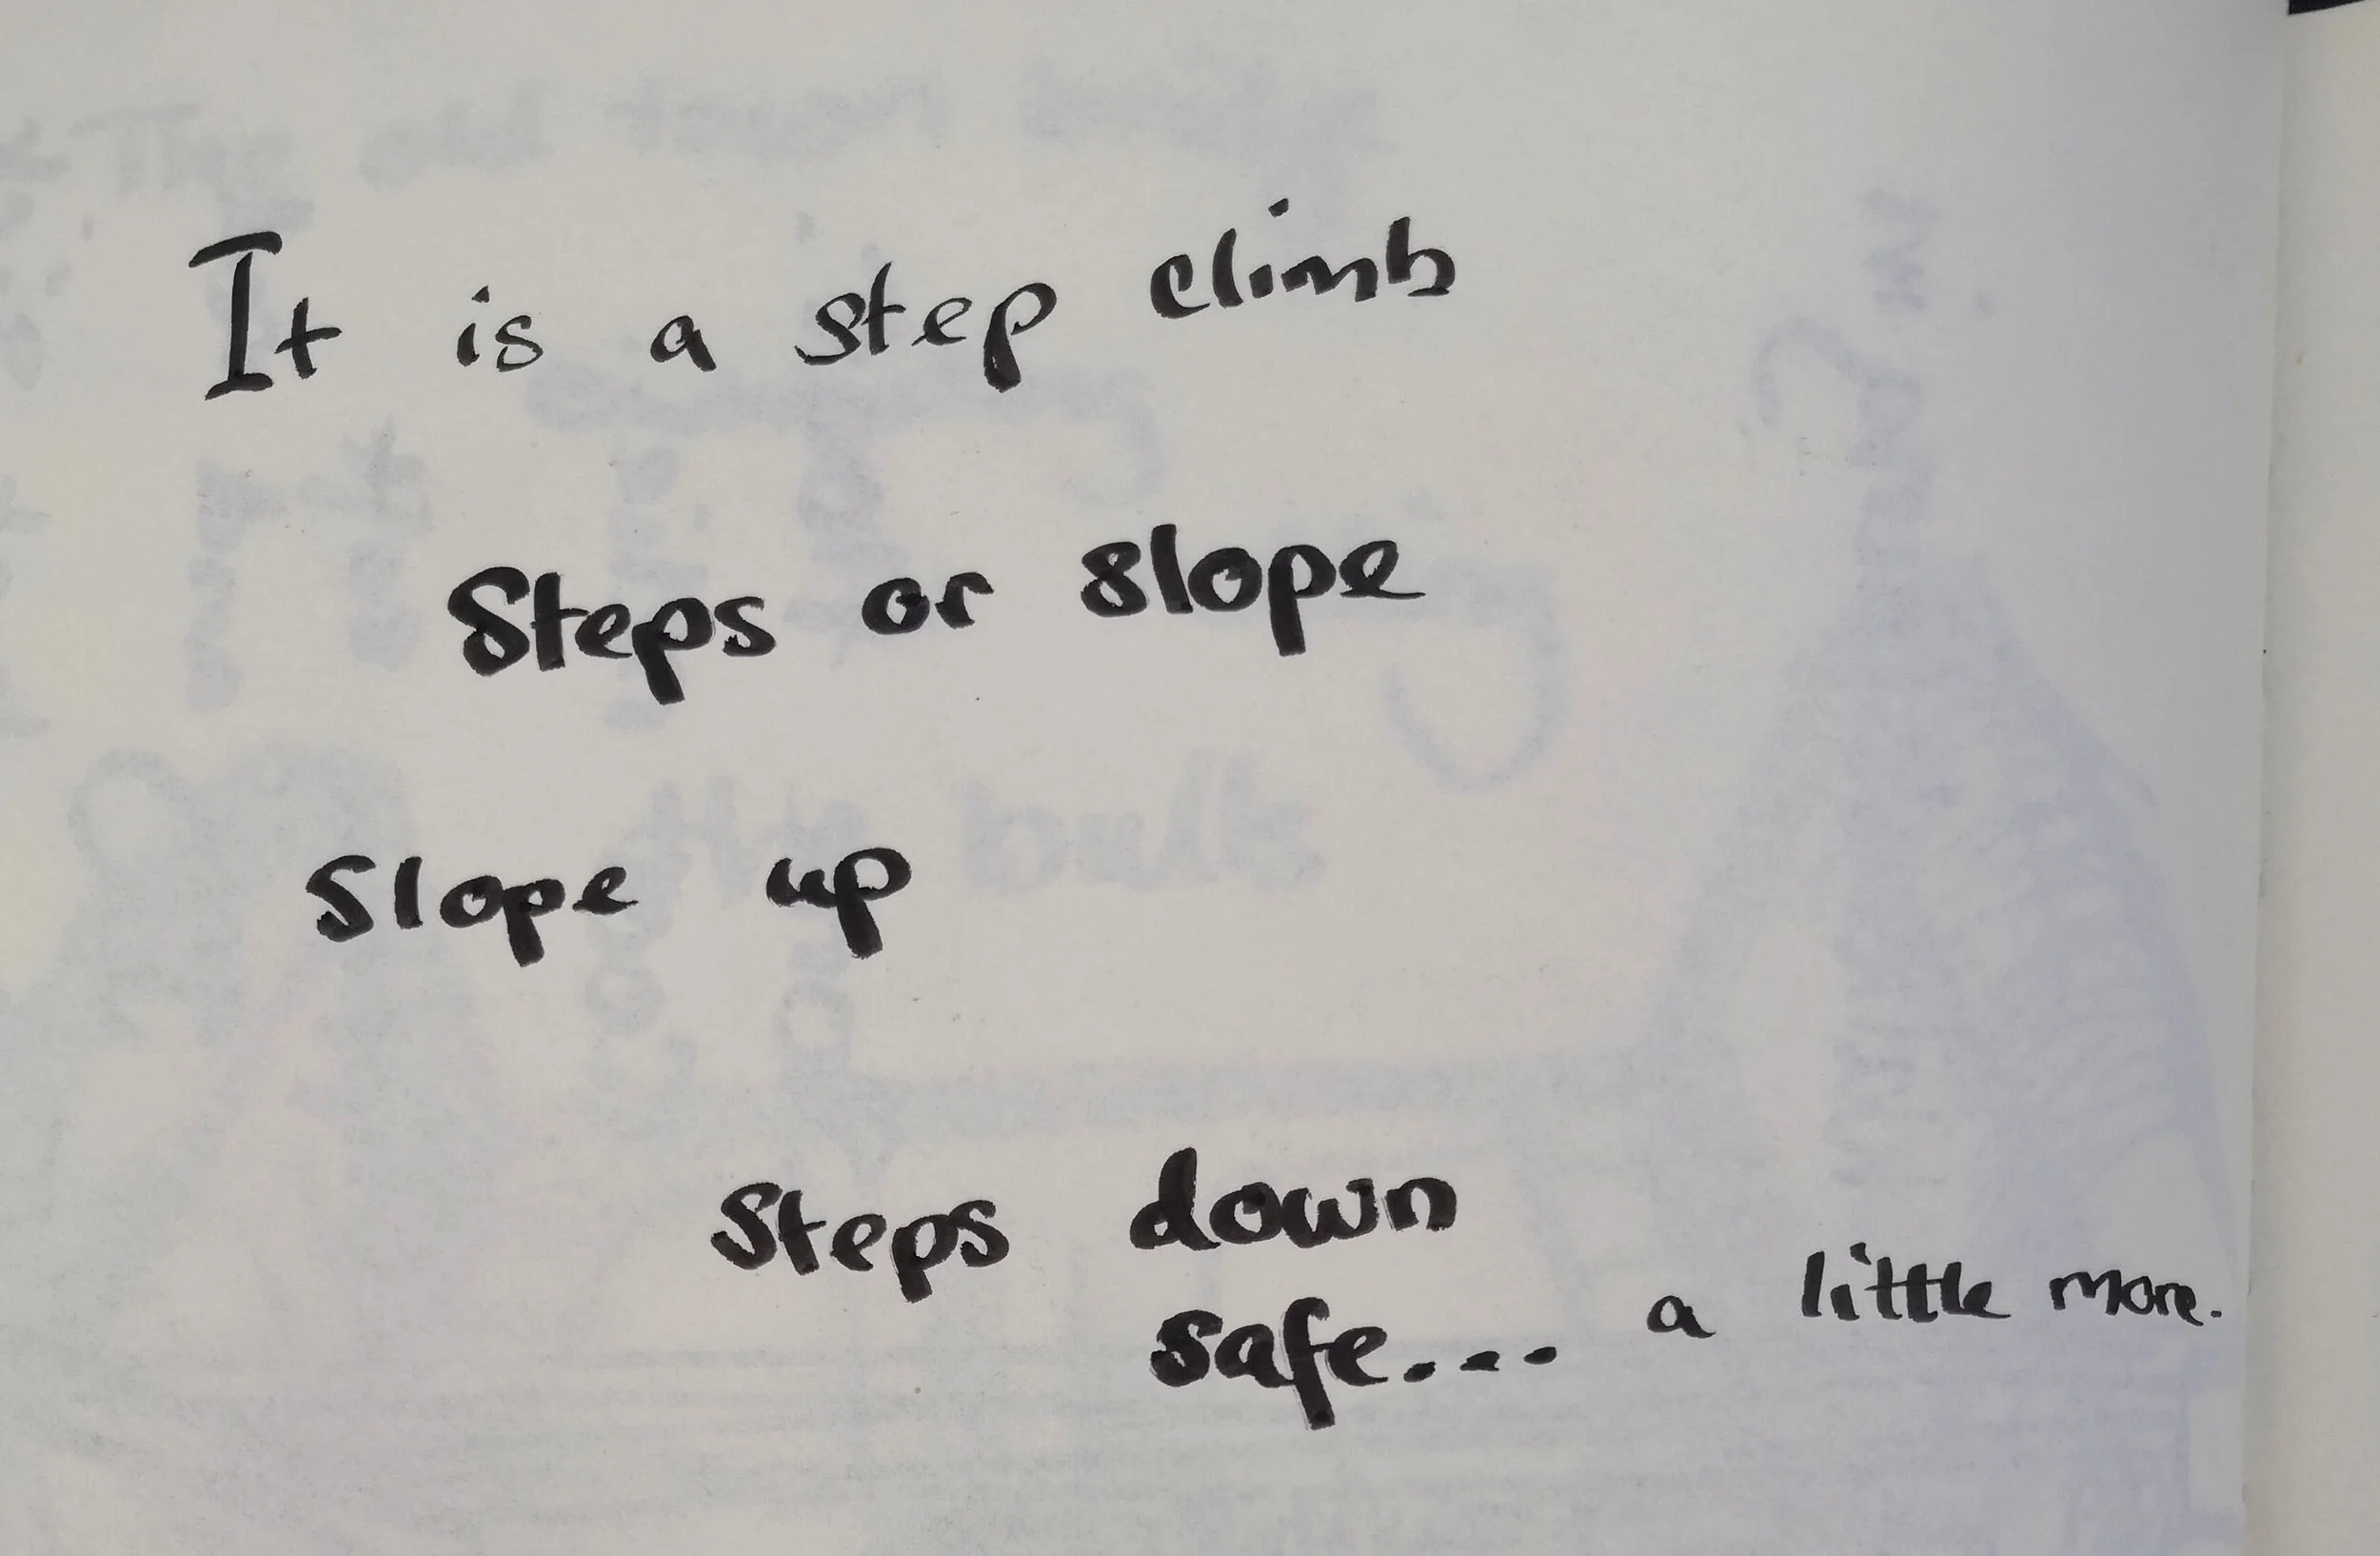 It is a step climb
Steps or slope
Slope up
Steps down
safe... a little more.